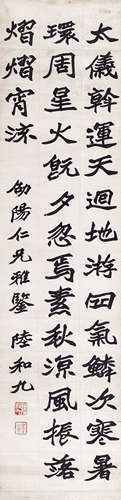 太儀斡運天迴地游四氣鱗次寒暑
環周星火既夕忽焉素秋涼風振落
熠熠宵流
劭陽仁兄雅鑒 陸和九